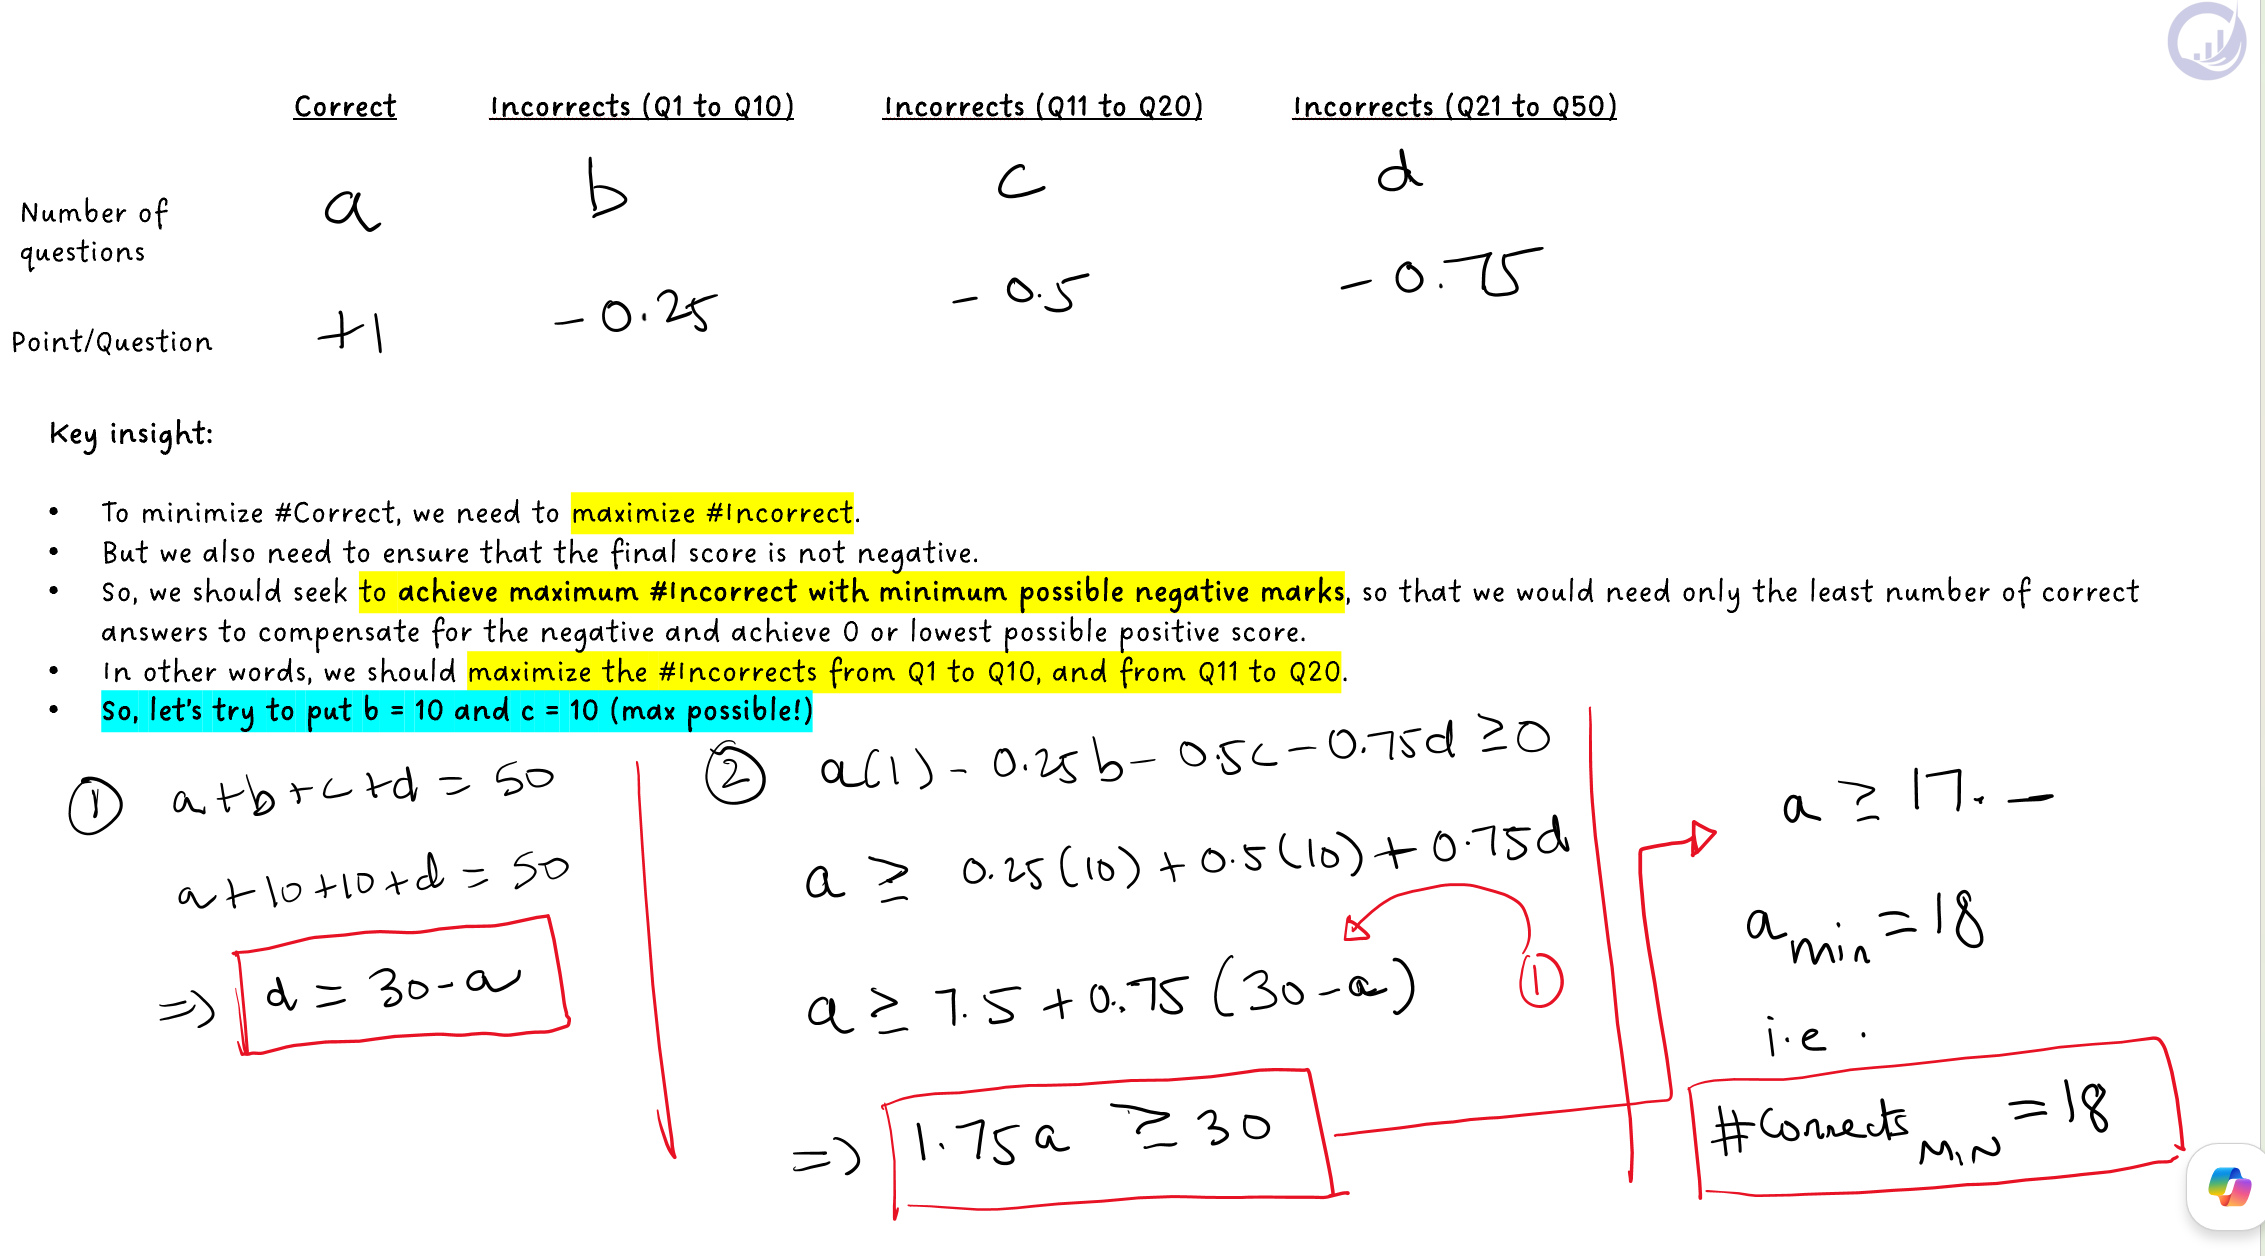 Correct Incorrects (Q1 to Q10) Incorrects (Q11 to Q20) Incorrects (Q21 to Q50)
Number of questions a b c d
Point/Question +1 -0.25 -0.5 -0.75
Key insight:
• To minimize #Correct, we need to maximize #Incorrect.
• But we also need to ensure that the final score is not negative.
• So, we should seek to achieve maximum #Incorrect with minimum possible negative marks, so that we would need only the least number of correct
answers to compensate for the negative and achieve 0 or lowest possible positive score.
• In other words, we should maximize the #Incorrects from Q1 to Q10, and from Q11 to Q20.
• So, let's try to put b = 10 and c = 10 (max possible!)
① a+b+c+d = 50
a+10+10+d = 50
=> d = 30-a
② a(1) - 0.25b - 0.5c - 0.75d ≥ 0
a ≥ 0.25(10) + 0.5(10) + 0.75d
a ≥ 7.5 + 0.75(30-a)
①
=> 1.75a ≥ 30
a ≥ 17. –
a min = 18
i.e.
#Corrects MIN = 18